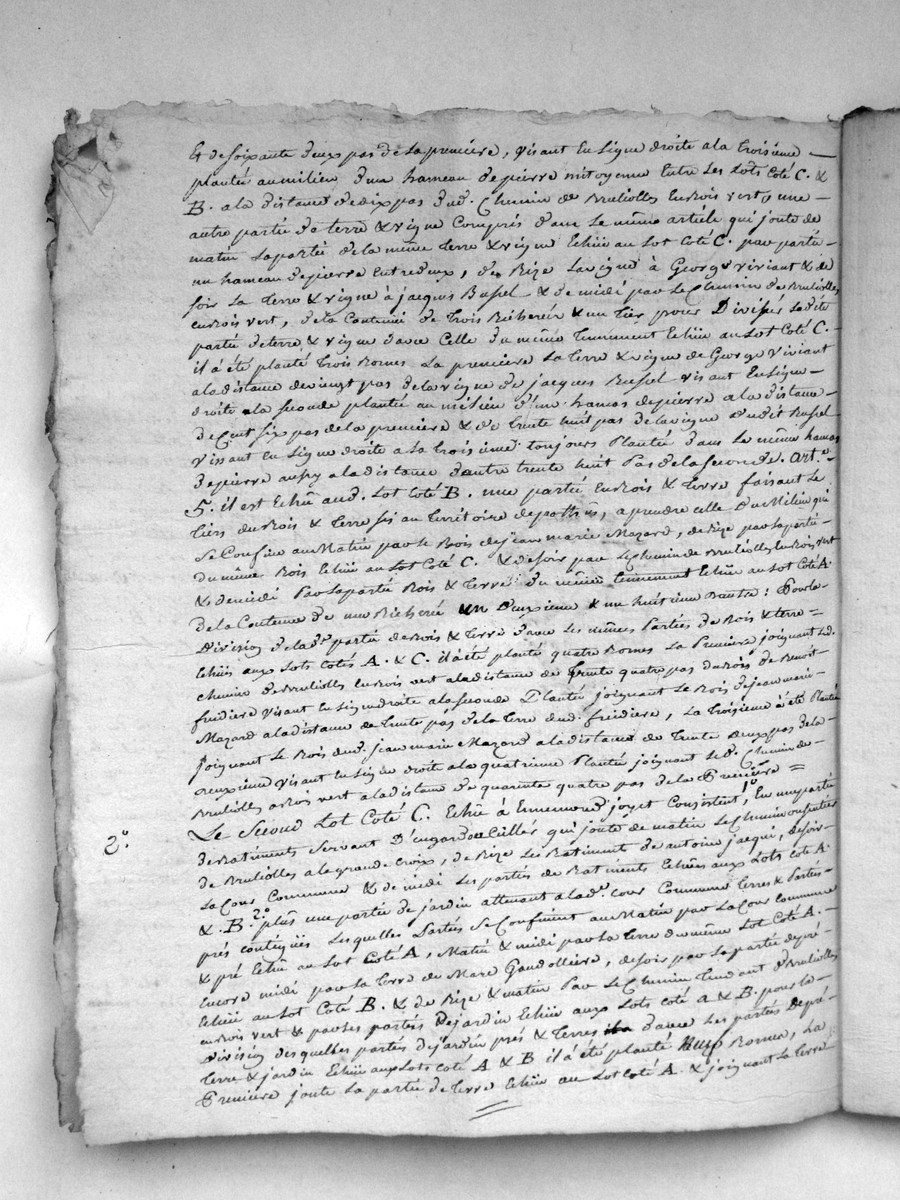 Et de soixante deux pas de la première, visant en Ligne droite a la troisième
plantée au milieu d'un hameau de pierre mitoyenne Entre les Lots Coté C. &
B. a la distance de dix pas dud. Chemin de Brulioles au Bois vert, une
autre partie de terre & vigne Compris dans le même article qui joute de
matin la partie de la même terre & vigne Echüe au Lot Coté C. par partie
un hameau de pierre Entredeux, de Bize la vigne à George viviant & de
soir la terre & vigne à jacques Bussel & de midi par le Chemin de Brulioles
au Bois vert, de la Contenue de trois Bicherée & un tier, pour Divisés ladite
partie de terre & vigne d'avec Celle du même tenement Echüe au Lot Coté C.
il à été planté trois Bornes La première La terre & vigne de George Viviant
a la distance de vingt pas de la vigne de jacques Bussel visant en Ligne
droite a la seconde plantée au milieu d'un hamas de pierre a la distance
de Cent six pas de la première & de trente huit pas de la vigne dudit Bussel
vissant en Ligne droite a la troisième toujours Plantée dans le même hamas
de pierre aussy a la distance d'autre trente huit Pas de la seconde. art.e
5. il est Echüe aud. Lot Coté B. une partie du Bois & terre faisant le
tiers du Bois & terre sis au territoire de, a prendre celle du Milieu qui
se Confine au Matin par le Bois de jean marie Mazard, de Bize par la partie
du même Bois Echüe au Lot Coté C. & de soir par le Chemin de Brulioles au Bois vert
& de midi Par la partie Bois & terre du même tenement Echüe au Lot Coté A.
de la Contenue de une Bicheré un Deuxieme & un huitieme: Pour la
Division de lad.e partie de Bois & terre d'avec les mêmes Parties de Bois & terre =
Echües aux Lots Cotés A. & C. il à été planté quatre Bornes La Première joignant led.
chemin de Brulioles au Bois vert a la distance de trente quatre pas du Bois de Benoit
frudiere visant en Ligne droite a la seconde Plantée joignant le Bois de jean marie
Mazard a la distance de trente pas de la terre dud. frudiere, La troisième à été Plantée
joignant le Bois dud. jean marie Mazard a la distance de trente deux pas de la
deuxieme visant en Ligne droite a la quatrieme Plantée joignant led. Chemin de
Brulioles au Bois vert a la distance de quarente quatre pas de la Première =
2.° Le Second Lot Coté C. Echüe à Ennemond joyet Consistent, 1.° En une partie
de Batiments servant D'engard qui joute de matin le Chemin
de Brulioles a la grande Croix, de Bize Les Batiments de antoine jacqui, de soir
la Cour Commune & de midi Les parties de Batiments Echües aux Lots coté A.
& B. 2.° plus une partie de jardin attenant a lad.e cour Commune terres & Parties
prés contiguës Lesquelles Parties se Confinent au Matin par la Cour commune
& pré Echüe au Lot Coté A, Matin & midi par la terre du même Lot Coté A.
Encore midi par la terre de Marc Gaudolliere, de soir par la partie de pré
Echüe au Lot Coté B. & de Bize & matin Par le Chemin tendant de Brulioles
au Bois vert & par les parties de jardin Echües aux Lots coté A & B. pour la
Division desquelles parties de jardin prés & terres d'avec Les parties De pré
terre & jardin Echües aux Lots coté A & B il à été planté Bornes, La
Première joute la partie de terre Echüe au Lot Coté A. & joignant la terre